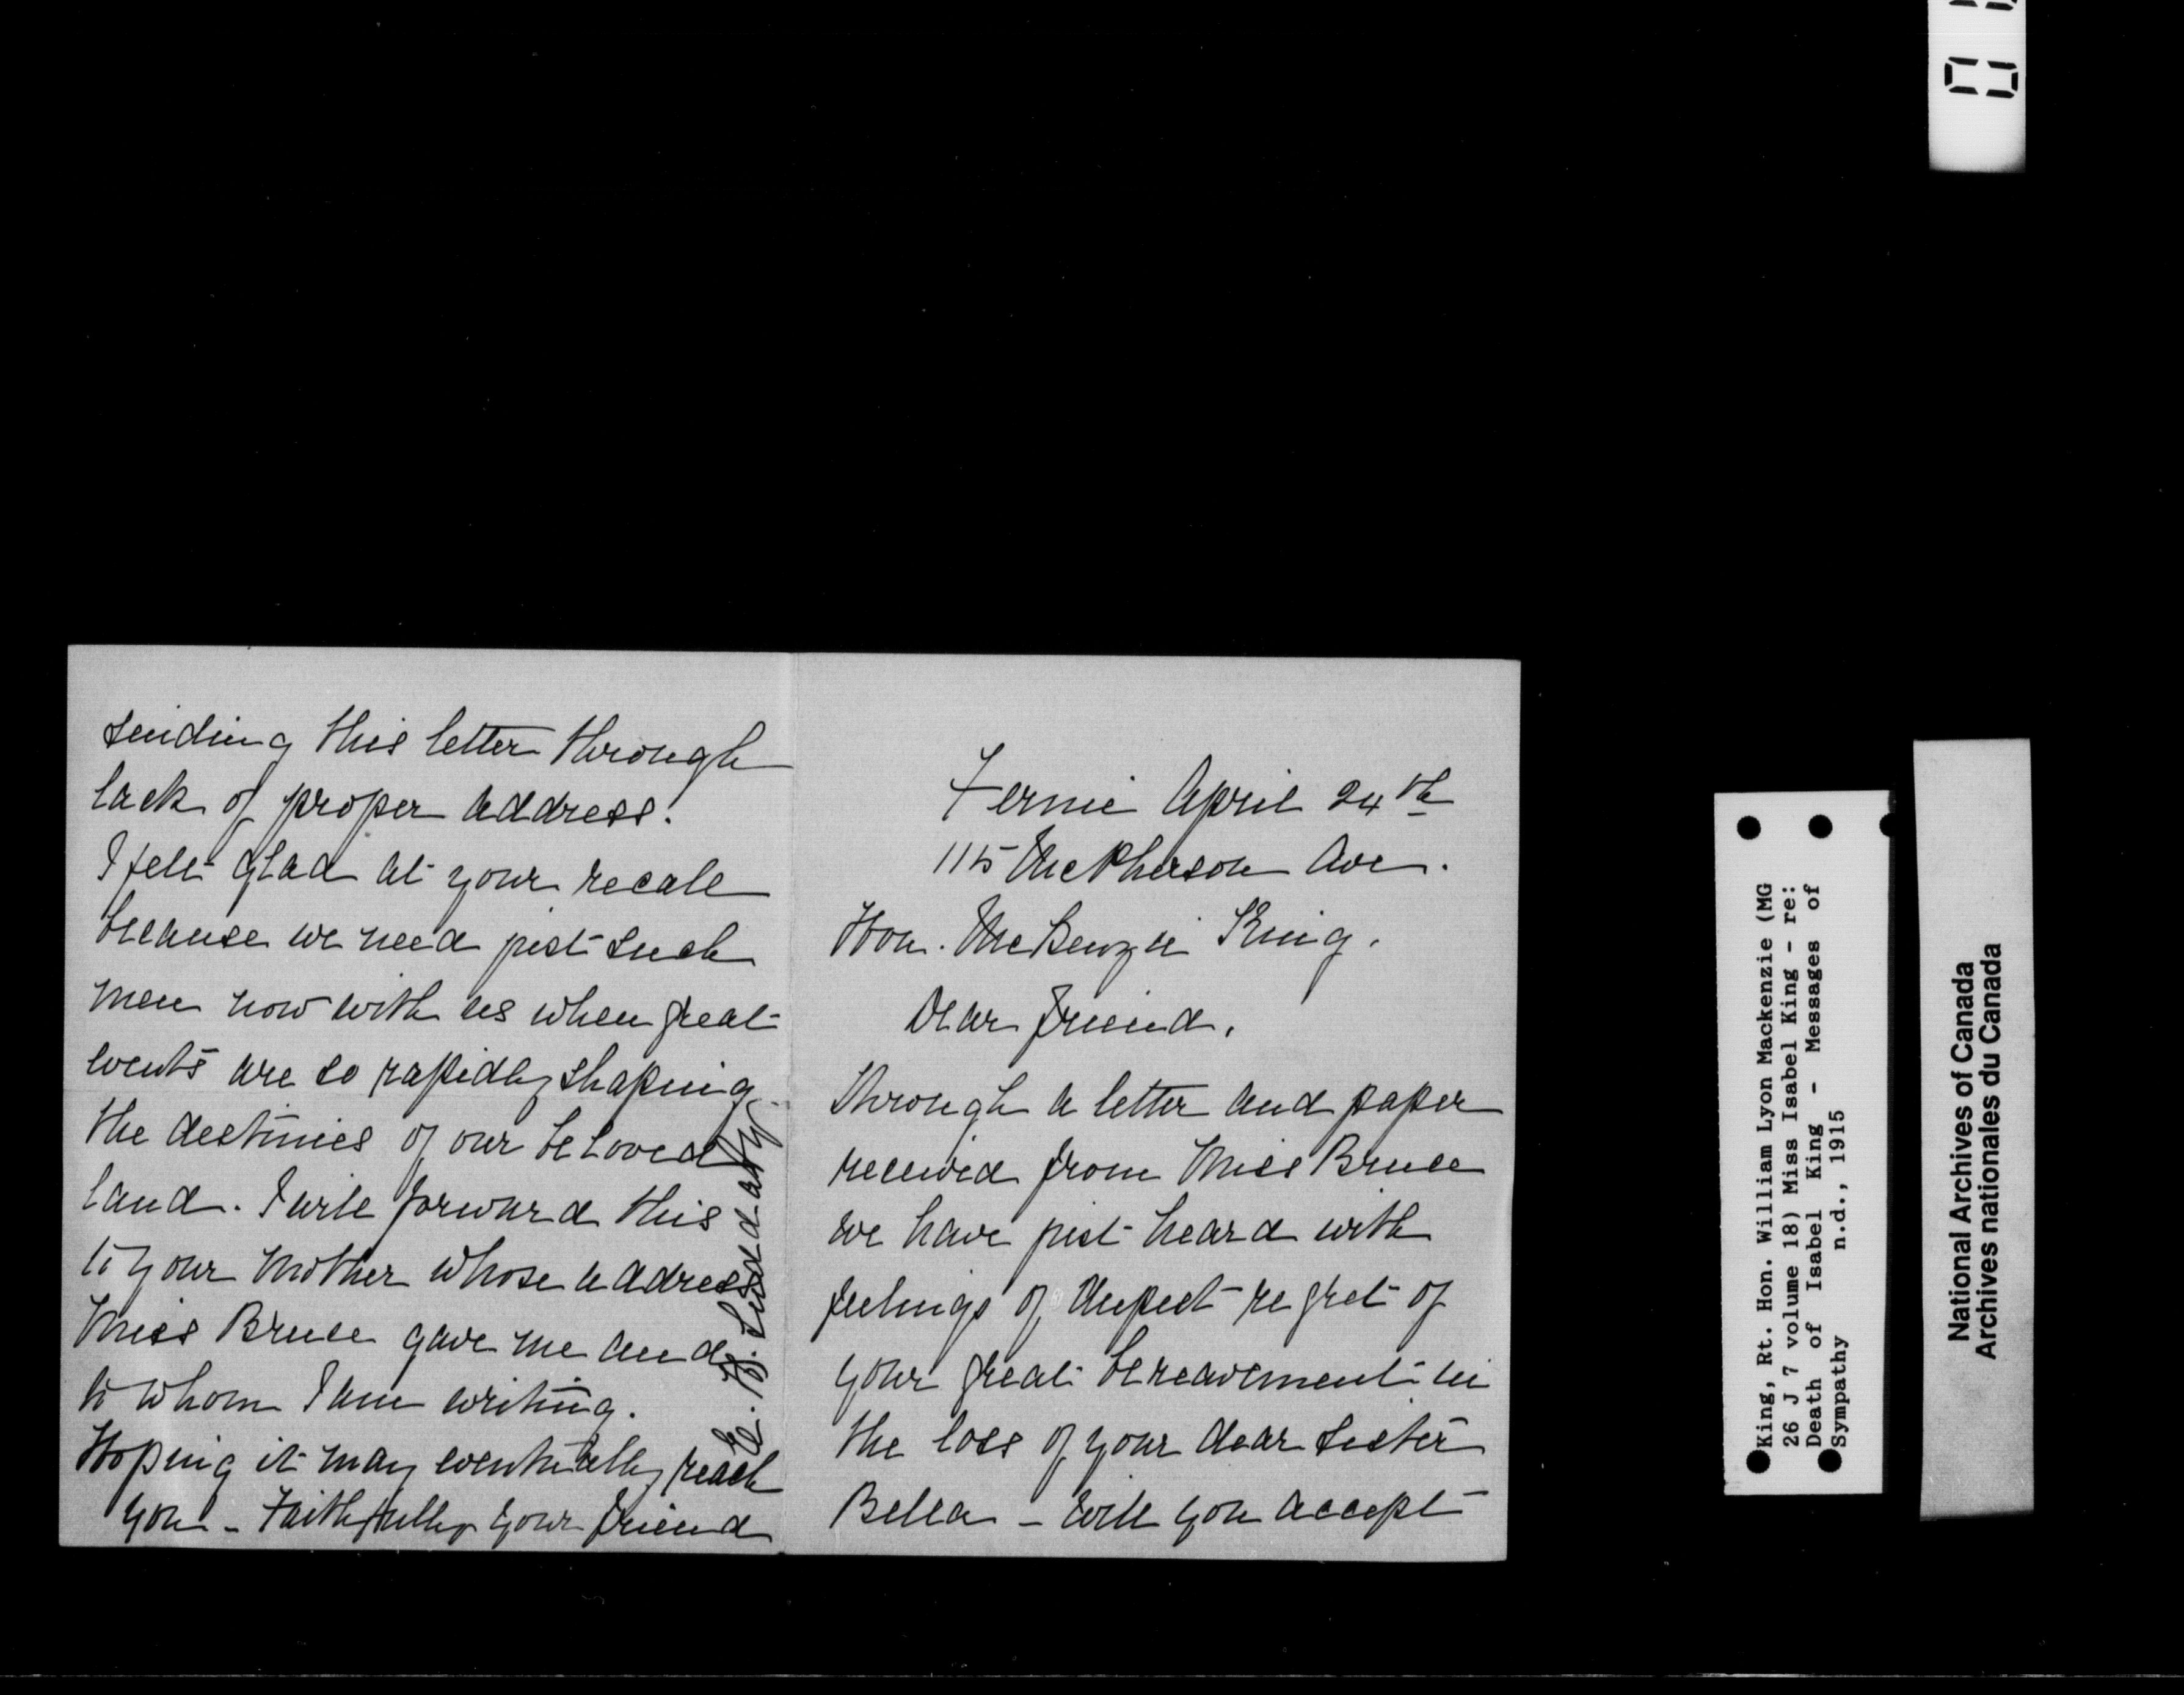 Fernie April 24th
115 McPherson Ave.
Hon. McKenzie King.
Dear friend,
Through a letter and paper
received from Miss Bruce
we have just heard with
feelings of deepest regret of
your great bereavement in
the loss of your dear sister
Bella - Will you accept
sending this letter through
lack of proper address.
I felt glad at your recall
because we need just such
men now with us when great
events are so rapidly shaping
the destinies of our beloved
land. I will forward this
to your mother whose address
Miss Bruce gave me and
to whom I am writing.
Hoping it may eventually reach
you - Faithfully your friend
E. B.
King, Rt. Hon. William Lyon Mackenzie (MG
26 J 7 volume 18) Miss Isabel King - re:
Death of Isabel King - Messages of
Sympathy n.d., 1915
National Archives of Canada
Archives nationales du Canada